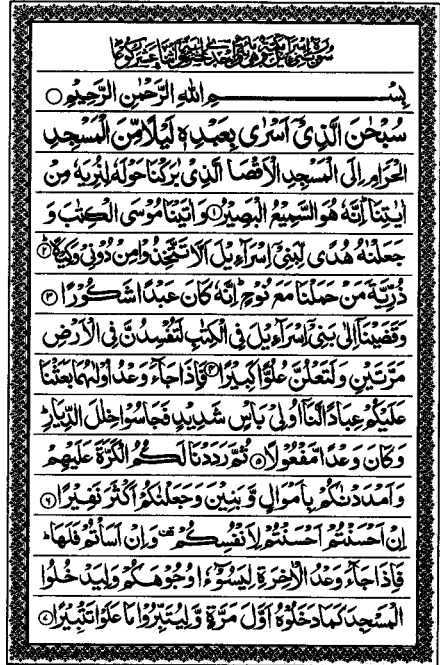 سورة بنی اسرآءیل مکیة وهی مائة واحدی عشرة اٰیة واثنا عشر رکوعا
بِسْمِ اللهِ الرَّحْمٰنِ الرَّحِيْمِ ○
سُبْحٰنَ الَّذِيْٓ اَسْرٰى بِعَبْدِهٖ لَيْلًا مِّنَ الْمَسْجِدِ
الْحَرَامِ اِلَى الْمَسْجِدِ الْاَقْصَا الَّذِيْ بٰرَكْنَا حَوْلَهٗ لِنُرِيَهٗ مِنْ
اٰيٰتِنَا ؕ اِنَّهٗ هُوَ السَّمِيْعُ الْبَصِيْرُ ۝۱ وَاٰتَيْنَا مُوْسَى الْكِتٰبَ وَ
جَعَلْنٰهُ هُدًى لِّبَنِيْٓ اِسْرَآءِيْلَ اَلَّا تَتَّخِذُوْا مِنْ دُوْنِيْ وَكِيْلًا ۝۲
ذُرِّيَّةَ مَنْ حَمَلْنَا مَعَ نُوْحٍ ؕ اِنَّهٗ كَانَ عَبْدًا شَكُوْرًا ۝۳
وَقَضَيْنَآ اِلٰى بَنِيْٓ اِسْرَآءِيْلَ فِي الْكِتٰبِ لَتُفْسِدُنَّ فِي الْاَرْضِ
مَرَّتَيْنِ وَلَتَعْلُنَّ عُلُوًّا كَبِيْرًا ۝۴ فَاِذَا جَآءَ وَعْدُ اُوْلٰىهُمَا بَعَثْنَا
عَلَيْكُمْ عِبَادًا لَّنَآ اُولِيْ بَاْسٍ شَدِيْدٍ فَجَاسُوْا خِلٰلَ الدِّيَارِ ؕ
وَكَانَ وَعْدًا مَّفْعُوْلًا ۝۵ ثُمَّ رَدَدْنَا لَكُمُ الْكَرَّةَ عَلَيْهِمْ
وَاَمْدَدْنٰكُمْ بِاَمْوَالٍ وَّبَنِيْنَ وَجَعَلْنٰكُمْ اَكْثَرَ نَفِيْرًا ۝۶
اِنْ اَحْسَنْتُمْ اَحْسَنْتُمْ لِاَنْفُسِكُمْ ۫ وَاِنْ اَسَاْتُمْ فَلَهَا ؕ
فَاِذَا جَآءَ وَعْدُ الْاٰخِرَةِ لِيَسُوْٓءٗا وُجُوْهَكُمْ وَلِيَدْخُلُوا
الْمَسْجِدَ كَمَا دَخَلُوْهُ اَوَّلَ مَرَّةٍ وَّلِيُتَبِّرُوْا مَا عَلَوْا تَتْبِيْرًا ۝۷